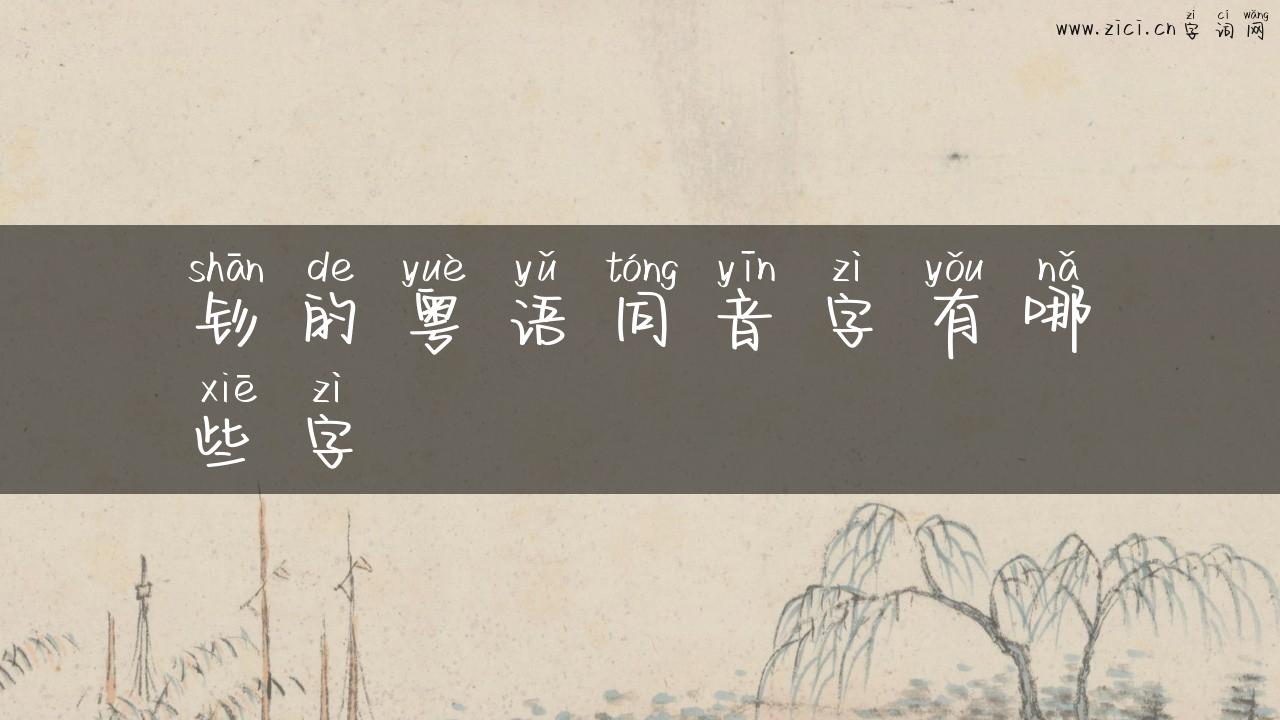 zì cí wǎng
www.zici.cn 字 词 网
shān de yuè yǔ tóng yīn zì yǒu nǎ
钐 的 粤 语 同 音 字 有 哪
xiē zì
些 字